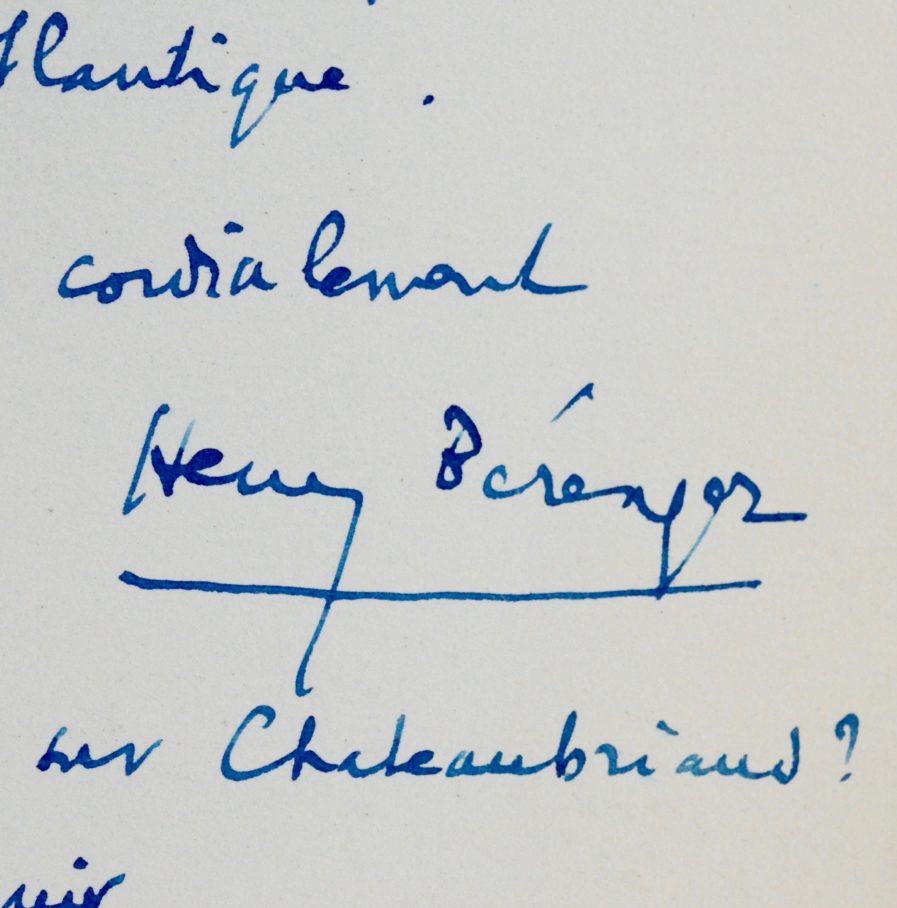 tlantique.
cordialement
Henry Bérenger
sur Chateaubriand?